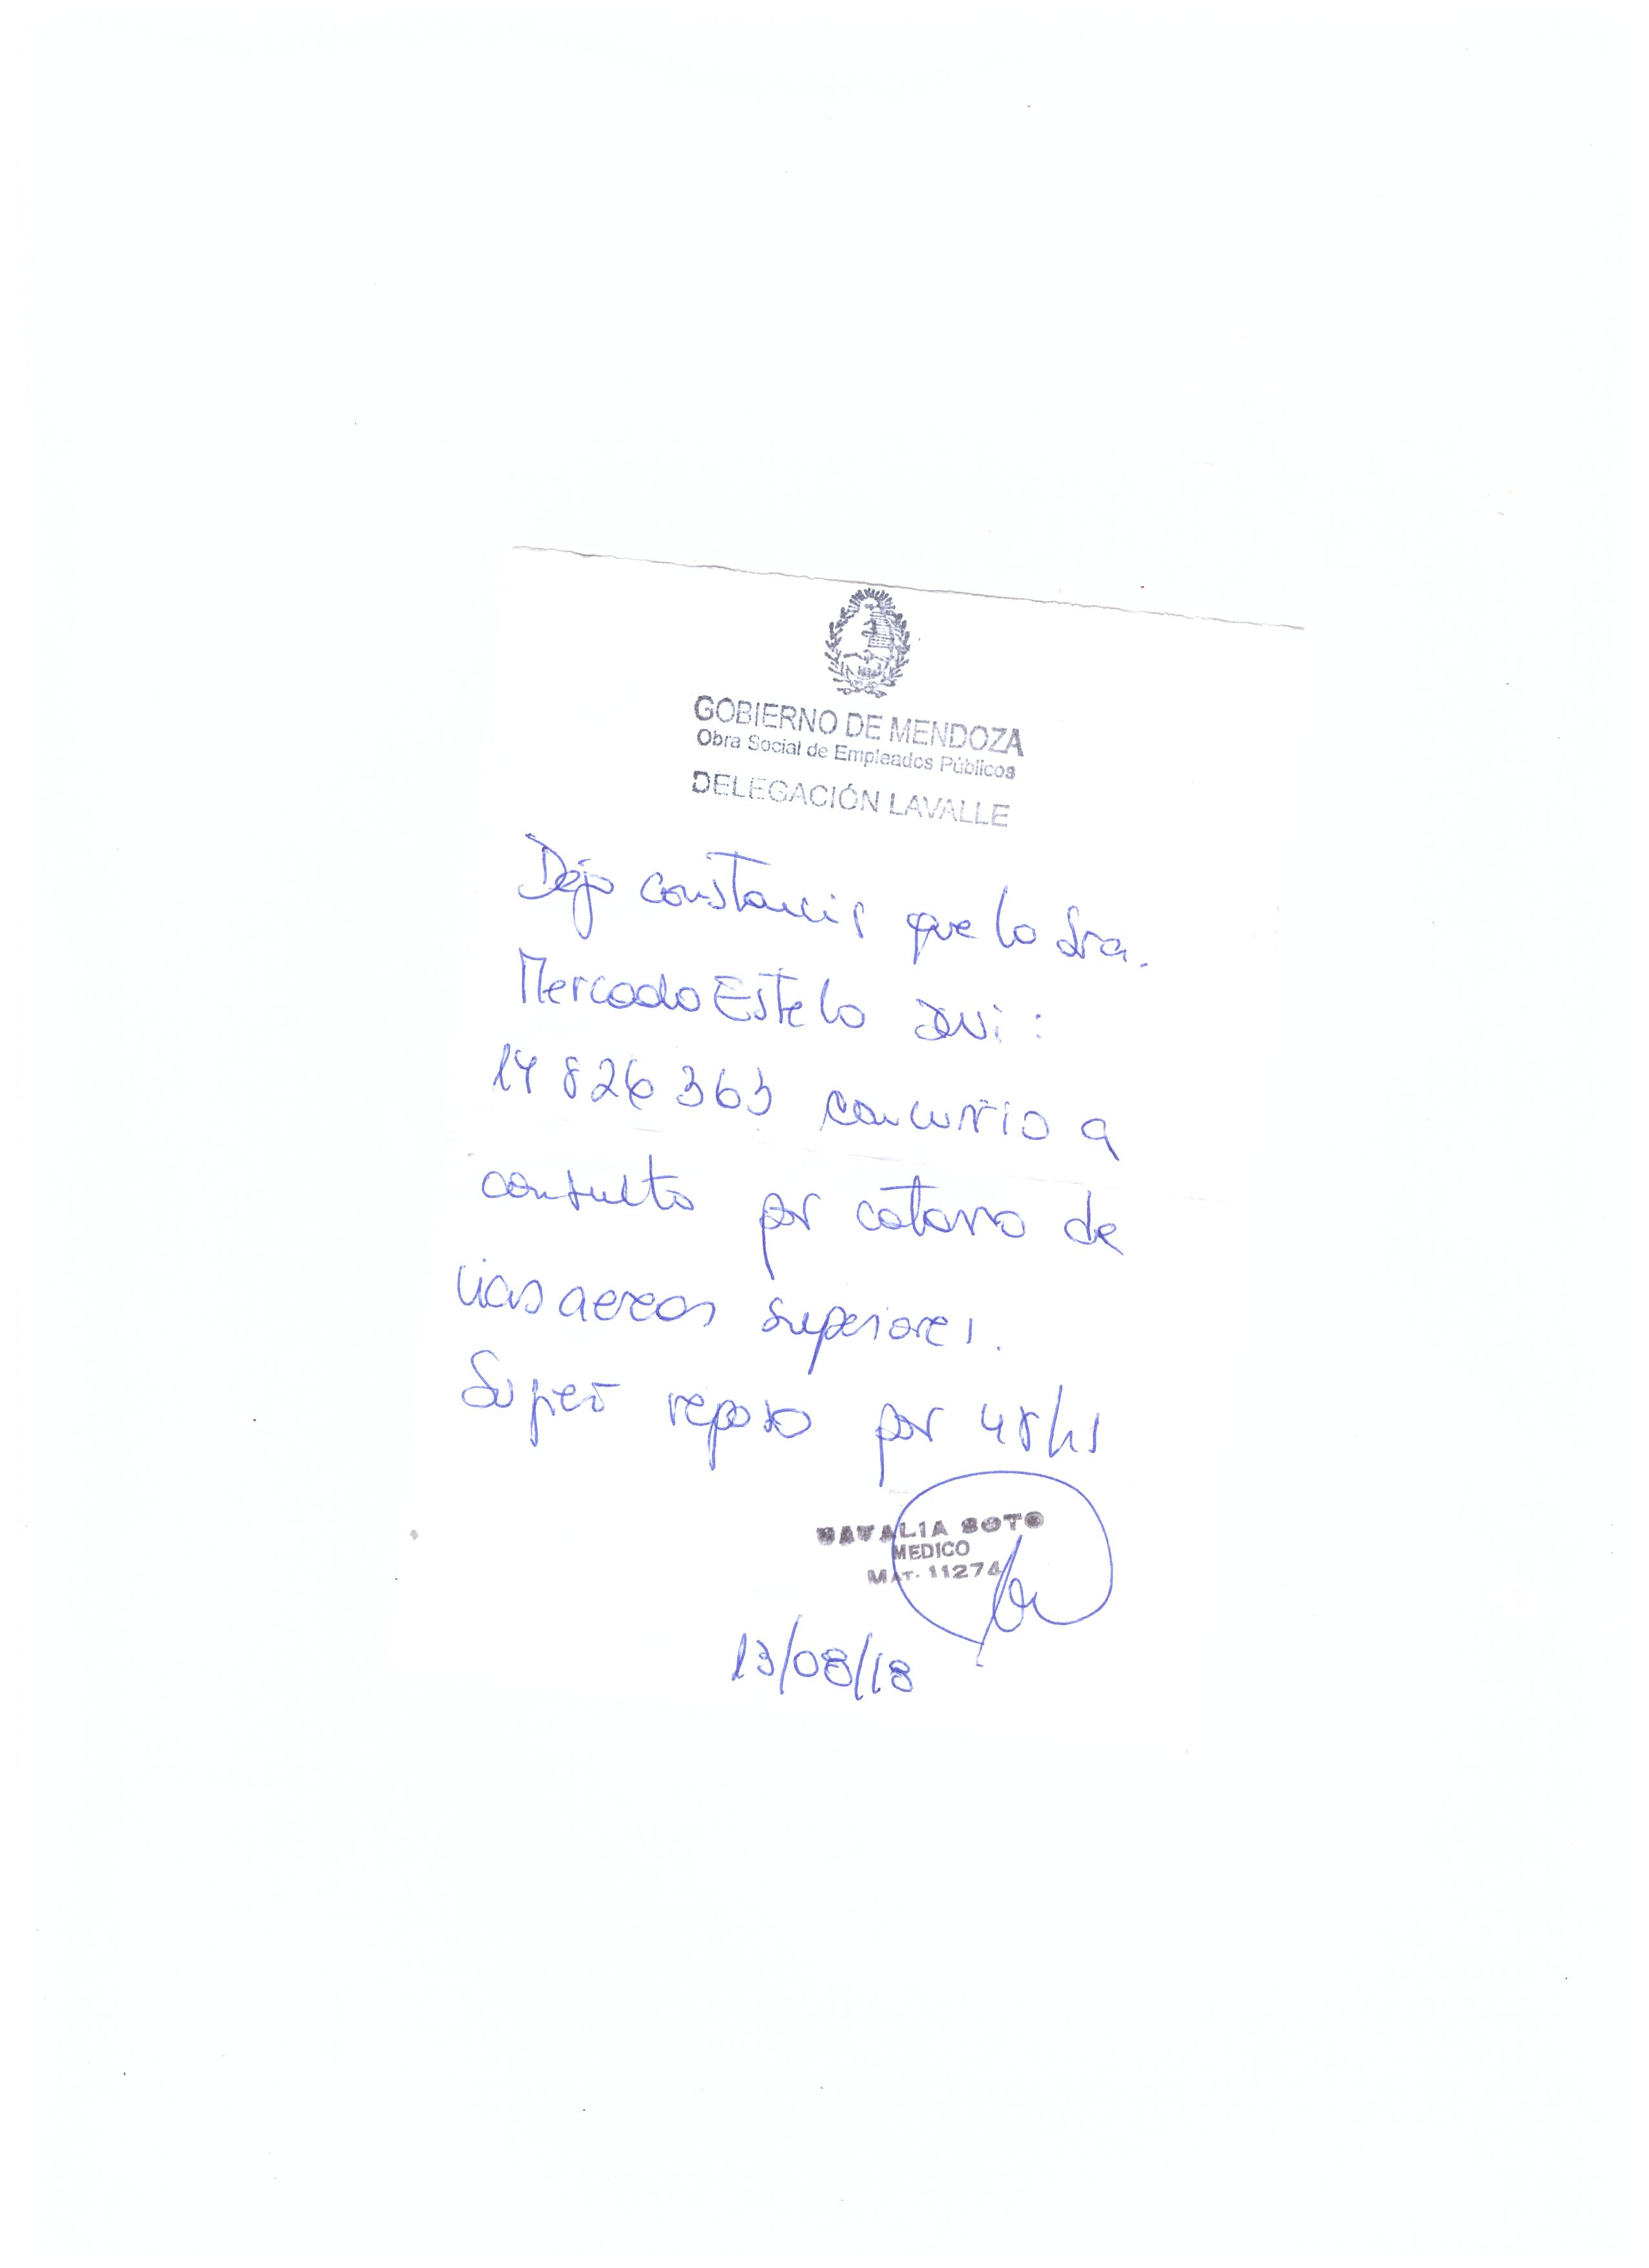 GOBIERNO DE MENDOZA
Obra Social de Empleados Públicos
DELEGACIÓN LAVALLE
Dejo constancia que la Sra.
Mercado Estela DNI:
14 826 363 concurrio a
consulta por catarro de
vias aereas superiores.
Sugiero reposo por 48 hs
NATALIA SOTO
MEDICO
MAT. 11274
13/08/18